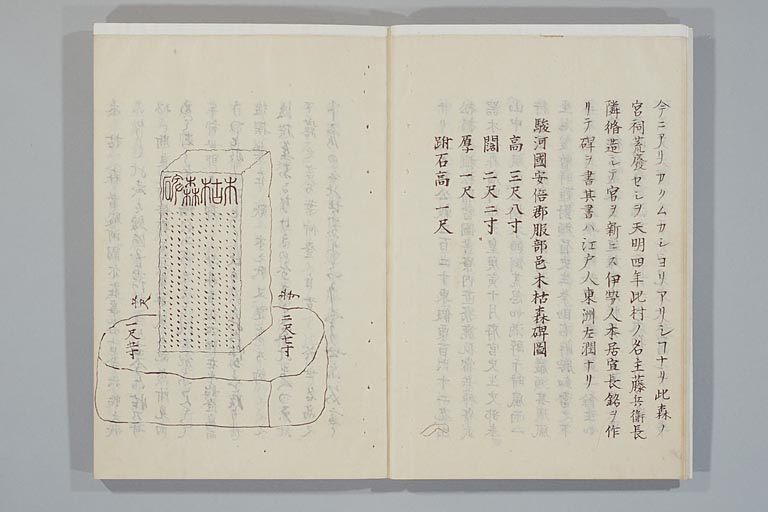 今ニアリ アクムカシヨリアリシヿナリ此森ノ
宮祠荒廢セシヲ天明四年此村ノ名主藤兵衛長
隣脩造シテ宮ヲ新ニス伊勢人本居宣長銘ヲ作
リテ碑ヲ書其書ハ江戸人東洲左潤ナリ
駿河國安倍郡服部邑木枯森碑圖
高 三尺八寸
闊 二尺二寸
厚 一尺
趺石高 一尺
木枯森碑
二尺七寸